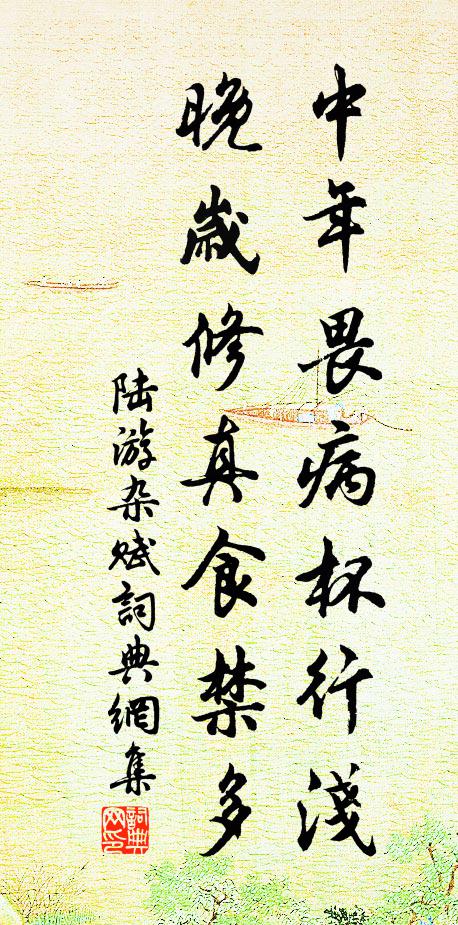 中年畏病杯行淺
晚歲修真食禁多
陆游杂赋詞典網集
詞典网印